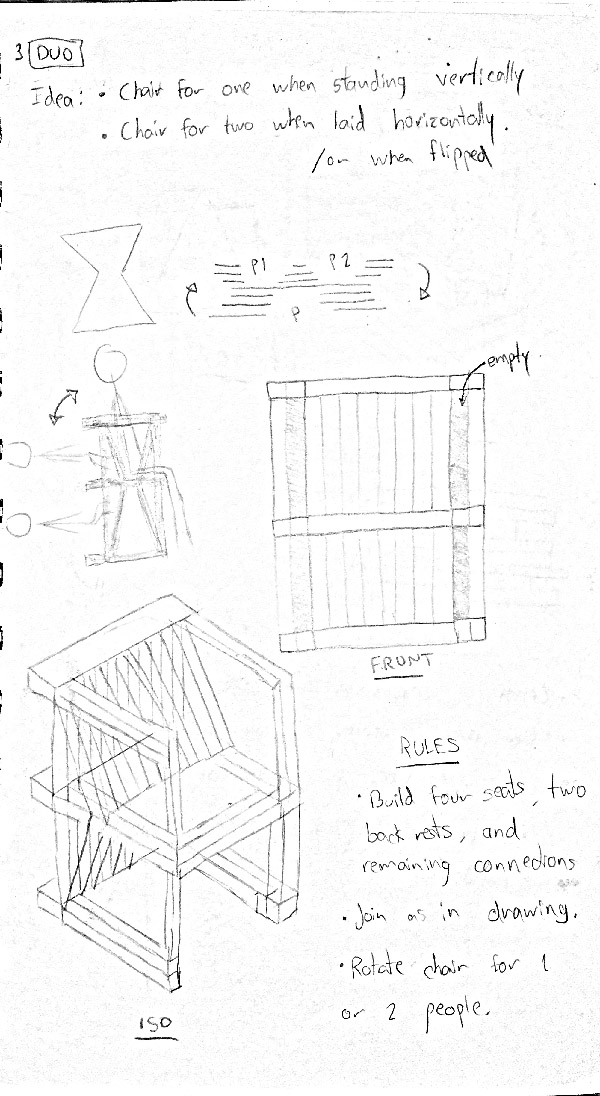 3 DUO
Idea: • Chair for one when standing vertically
• Chair for two when laid horizontally.
/or when flipped
P1 P2
P
empty.
FRONT
RULES
• Build four seats, two
back rests, and
remaining connections
• Join as in drawing.
• Rotate chair for 1
or 2 people.
ISO